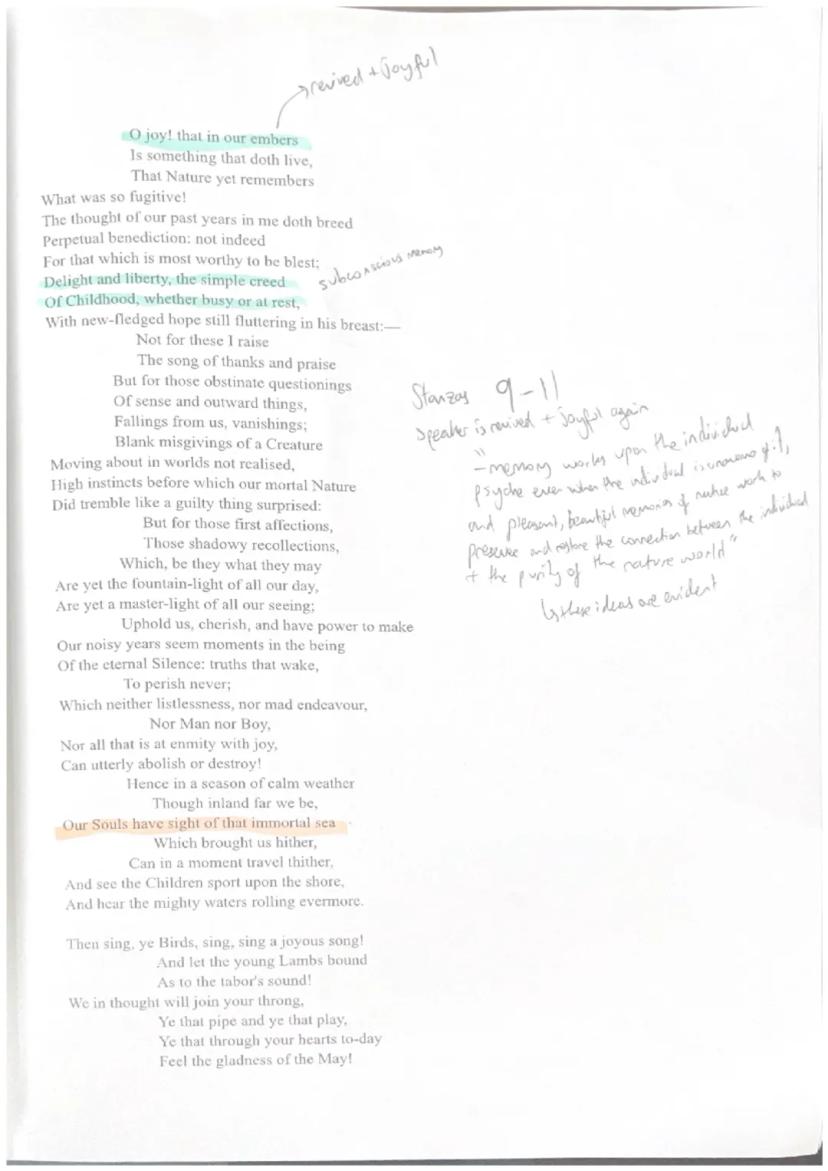 revived + joyful
O joy! that in our embers
Is something that doth live,
That Nature yet remembers
What was so fugitive!
The thought of our past years in me doth breed
Perpetual benediction: not indeed
For that which is most worthy to be blest;
Delight and liberty, the simple creed
Of Childhood, whether busy or at rest,
subconscious memory
With new-fledged hope still fluttering in his breast:—
Not for these I raise
The song of thanks and praise
But for those obstinate questionings
Of sense and outward things,
Fallings from us, vanishings;
Blank misgivings of a Creature
Moving about in worlds not realised,
High instincts before which our mortal Nature
Did tremble like a guilty thing surprised:
But for those first affections,
Those shadowy recollections,
Which, be they what they may
Are yet the fountain-light of all our day,
Are yet a master-light of all our seeing;
Uphold us, cherish, and have power to make
Our noisy years seem moments in the being
Of the eternal Silence: truths that wake,
To perish never;
Which neither listlessness, nor mad endeavour,
Nor Man nor Boy,
Nor all that is at enmity with joy,
Can utterly abolish or destroy!
Hence in a season of calm weather
Though inland far we be,
Our Souls have sight of that immortal sea
Which brought us hither,
Can in a moment travel thither,
And see the Children sport upon the shore,
And hear the mighty waters rolling evermore.
Then sing, ye Birds, sing, sing a joyous song!
And let the young Lambs bound
As to the tabor's sound!
We in thought will join your throng,
Ye that pipe and ye that play,
Ye that through your hearts to-day
Feel the gladness of the May!
Stanzas 9-11
Speaker is revived + joyful again
"
- memory works upon the individual
psyche even when the individual is unaware of it,
and pleasant, beautiful memories of nature work to
preserve and restore the connection between the individual
+ the purity of the nature world"
these ideas are evident